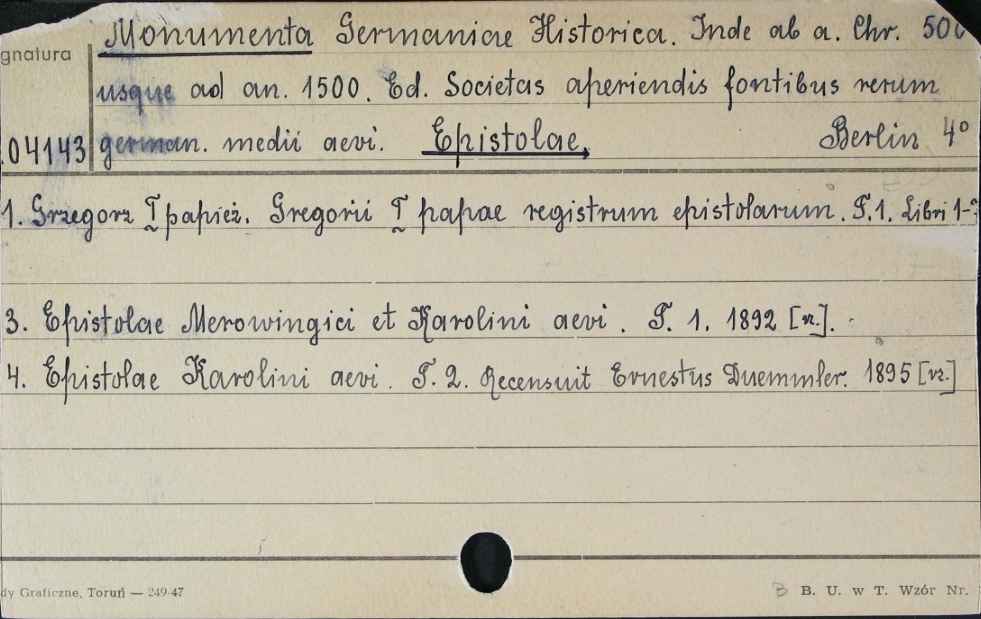 Monumenta Germaniae Historica. Inde ab a. Chr. 500
gnatura
usque ad an. 1500. Ed. Societas aperiendis fontibus rerum
04143 german. medii aevi. Epistolae. Berlin 4°
1. Grzegorz I papież. Gregorii I papae registrum epistolarum. T.1. Libri 1-
3. Epistolae Merowingici et Karolini aevi. T. 1. 1892 [vr.].
4. Epistolae Karolini aevi. T. 2. Recensuit Ernestus Duemmler. 1895 [vr.]
dy Graficzne, Toruń — 249-47
B. U. w T. Wzór Nr.